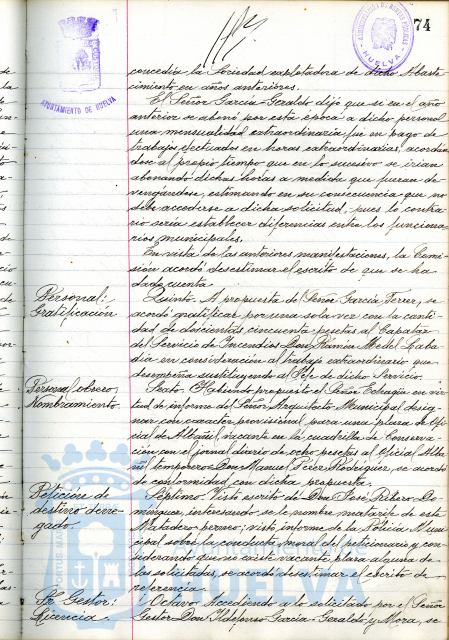 74
AYUNTAMIENTO DE HUELVA
HUELVA
concedia la Sociedad explotadora de dicho Abaste
cimiento en años anteriores.
El Señor Garcia-Geraldo dijo que si en el año
anterior se abonó por esta época a dicho personal
una mensualidad extraordinaria, fue en pago de
trabajos efectuados en horas extraordinarias, acordán
dose al propio tiempo que en lo sucesivo se irian
abonando dichas horas a medida que fueran de-
vengándose, estimando en su consecuencia que no
debe accederse a dicha solicitud, pues lo contra
rio seria establecer diferencias entre los funciona
rios municipales.
En vista de las anteriores manifestaciones, la Comi
sión acordó desestimar el escrito de que se ha
dado cuenta
Personal:
Gratificación
Quinto. A propuesta del Señor Garcia Ferrer, se
acordó gratificar por una sola vez con la canti
dad de doscientas cincuenta pesetas al Capataz
del Servicio de Incendios Don Ramón Abadia
en consideración al trabajo extraordinario que
desempeña sustituyendo al Jefe de dicho Servicio.
Personal obrero
Nombramiento
Sexto. Habiendo propuesto el Señor Echagüe en vir
tud de informe del Señor Arquitecto Municipal desig
nar con carácter provisional para una plaza de Ofi
cial de Albañil vacante en la cuadrilla de Conserva
ción con el jornal diario de ocho pesetas al Oficial Alba
ñil temporero Don Manuel Perez Rodriguez, se acordó
de conformidad con dicha propuesta.
Petición de
destino dene-
gado.
Septimo. Visto escrito de Don José Ribero Do-
minguez, interesando se le nombre matarife de este
Matadero; visto informe de la Policia Muni
cipal sobre la conducta moral del peticionario y con
siderando que no existe vacante plaza alguna de
las solicitadas, se acordó desestimar el escrito de
referencia.
Sr. Gestor:
Licencia.
Octavo. Accediendo a lo solicitado por el Señor
Gestor Don Ildefonso Garcia Geraldo y Mora, se